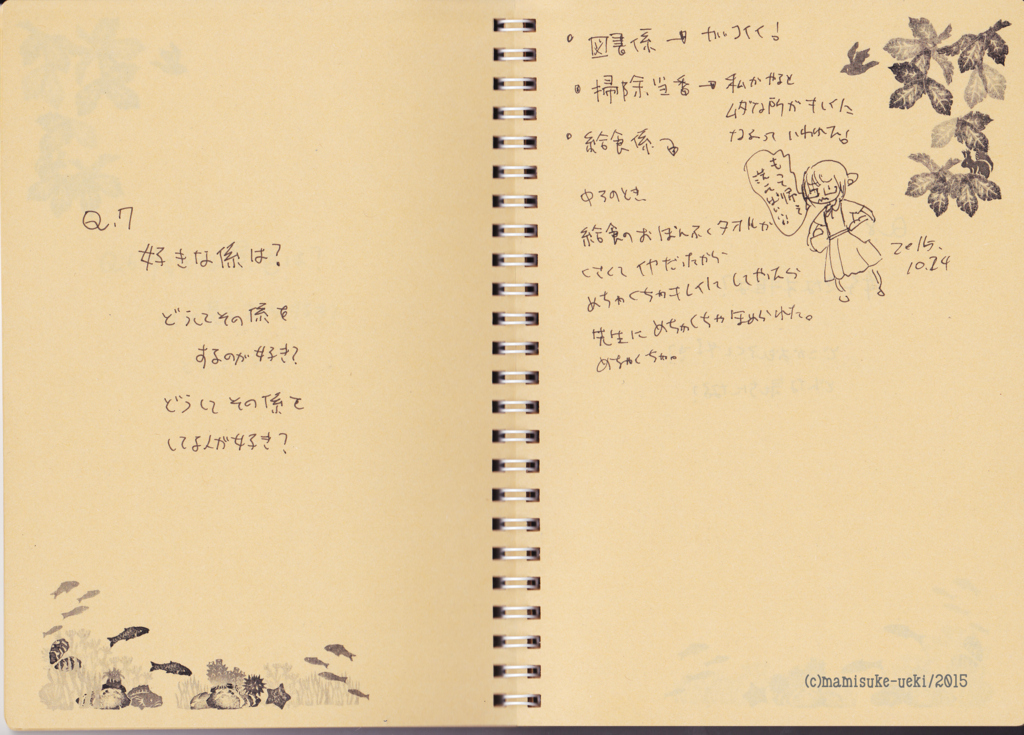 Q.7
好きな係は?
どうしてその係を
するのが好き?
どうして その係を
してる人が好き?
・図書係→カッコイイ!
・掃除当番→私がやると
ムダな所がキレイに
なるっていわれた!
・給食係
中3のとき
給食のおぼんふくタオルが
くさくてイヤだったから
めちゃくちゃキレイにしてやったら
先生にめちゃくちゃほめられた。
めちゃくちゃ。
もって帰って
洗えばいい
2015.
10.24
(c)mamisuke-ueki/2015